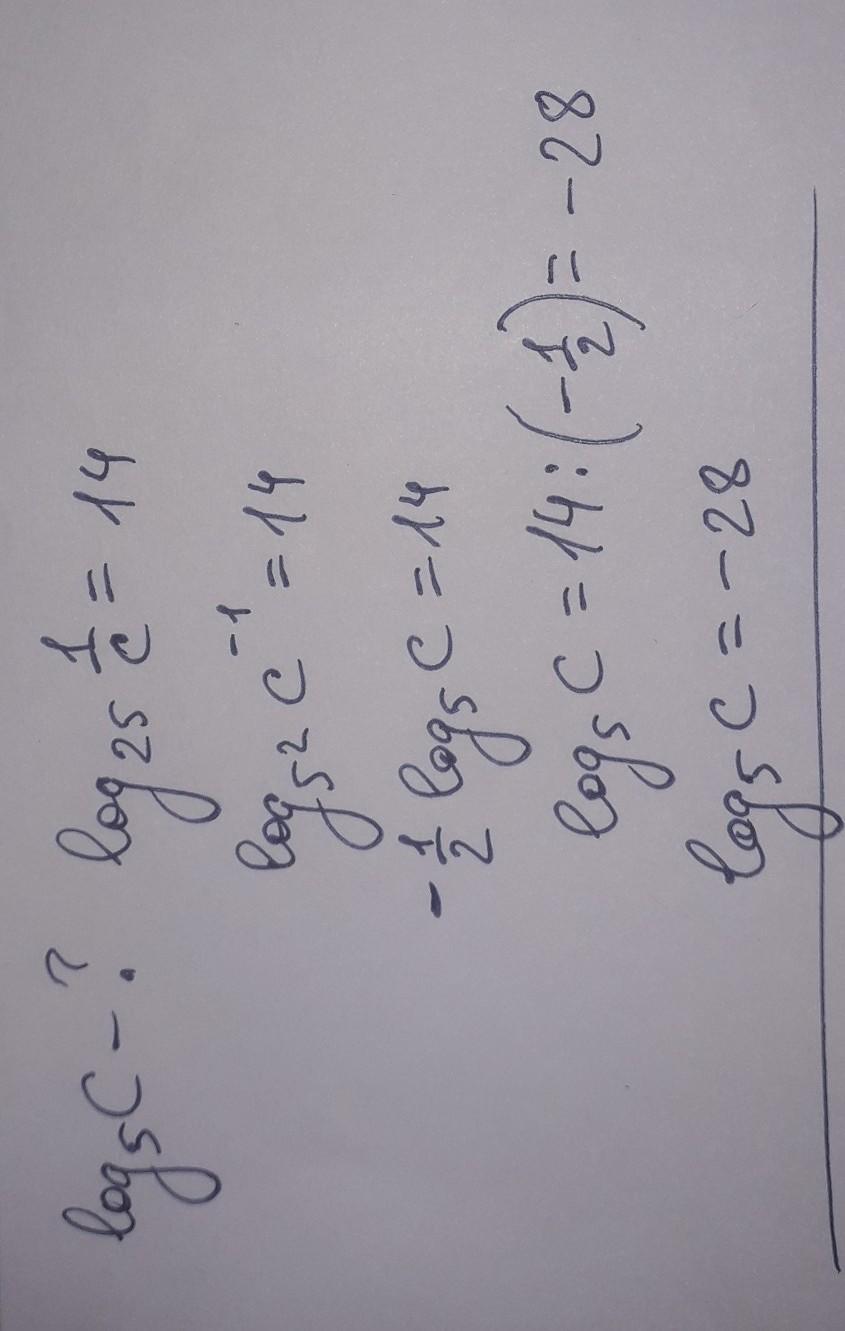 log₅C - ? log₂₅ 1/c = 14
log₅² C⁻¹ = 14
-1/2 log₅ C = 14
log₅ C = 14 : (-1/2) = -28
log₅ C = -28